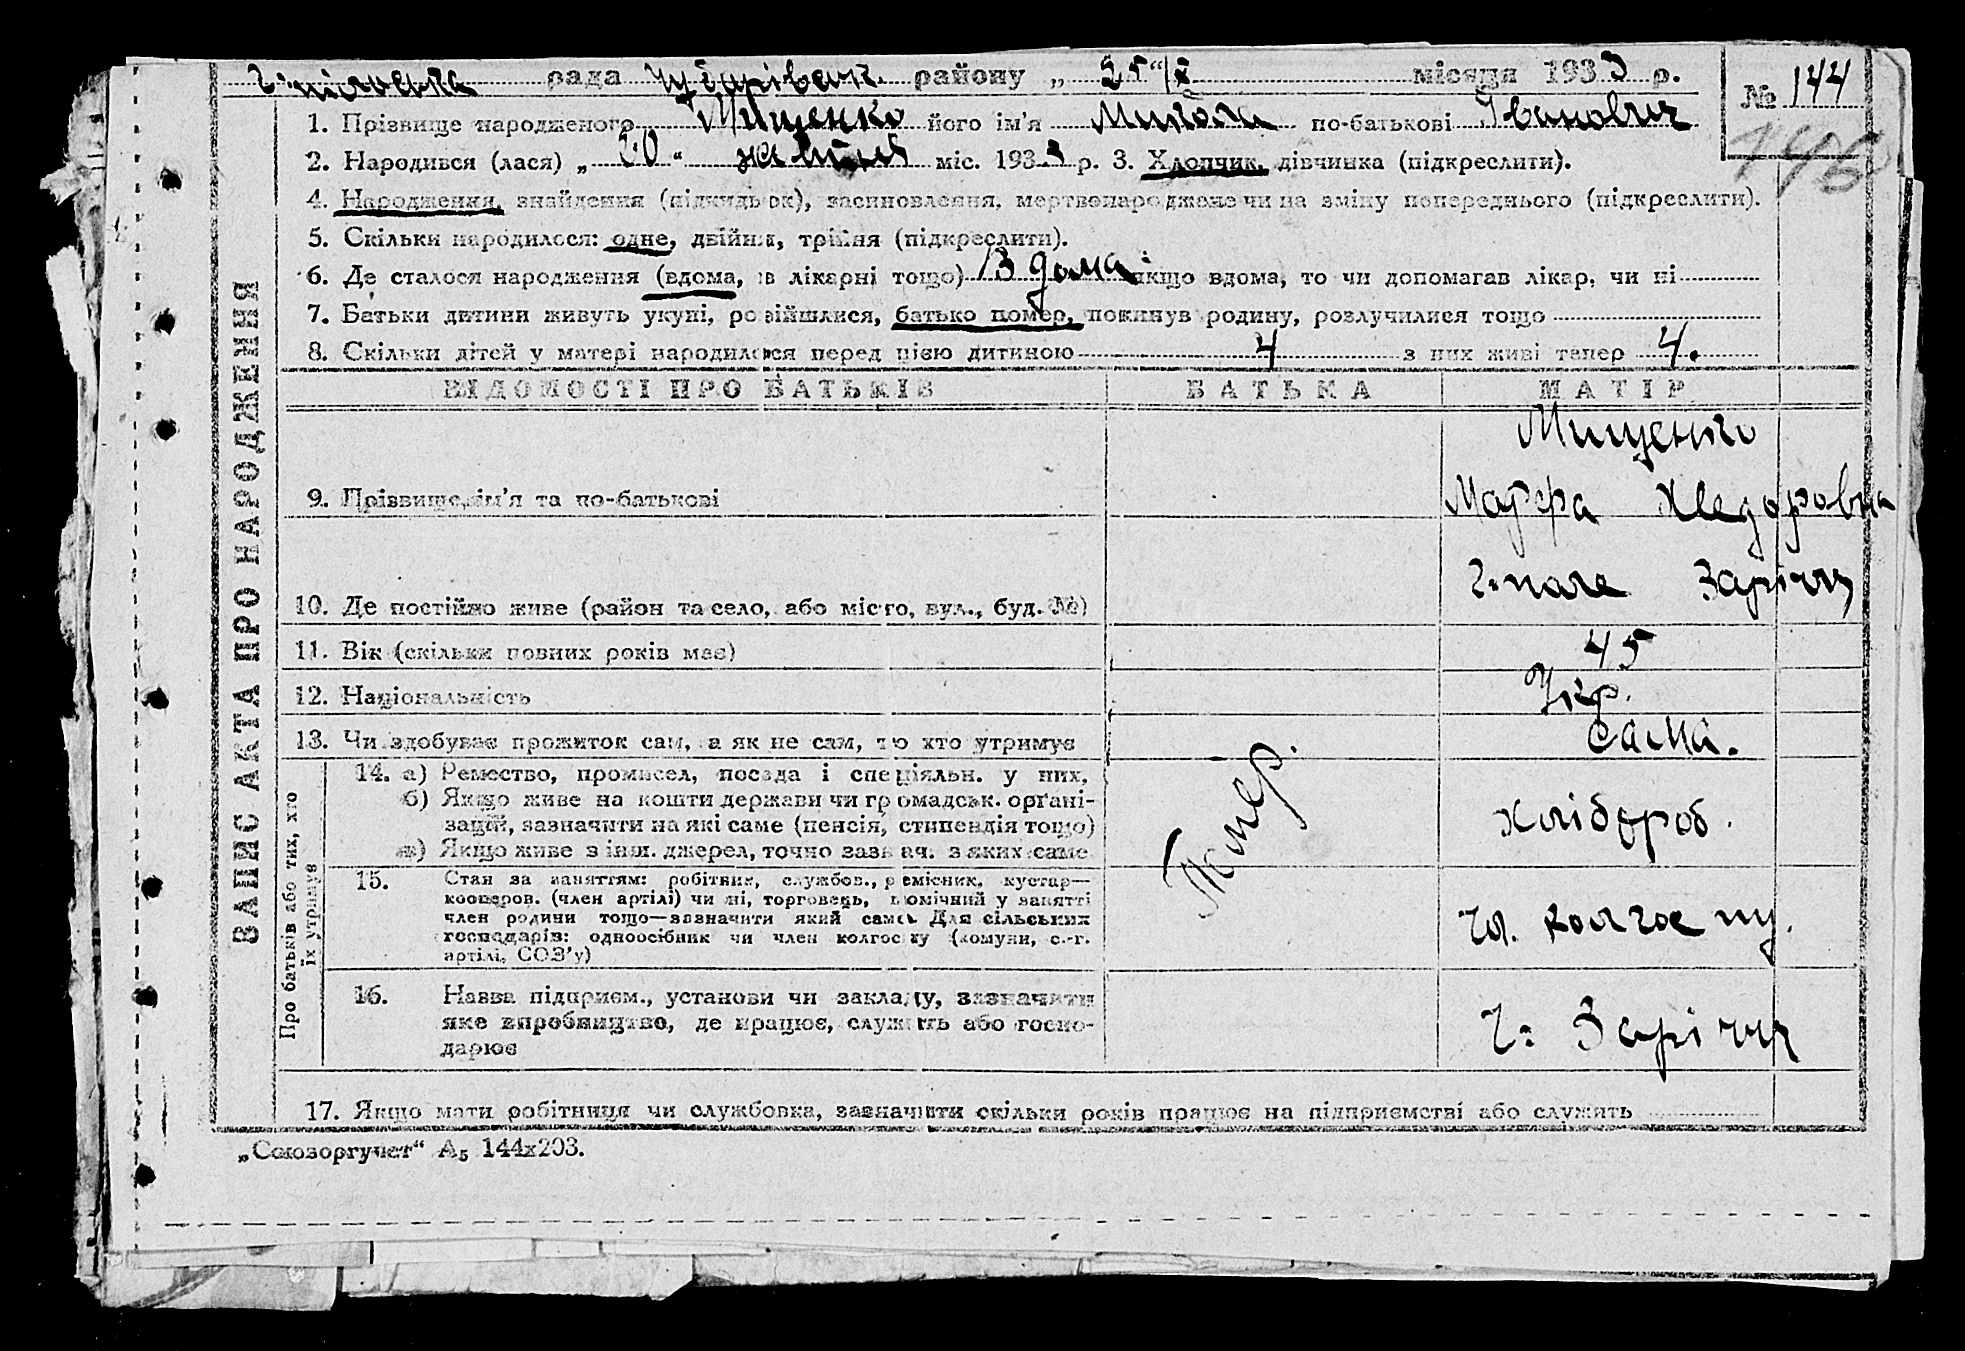 рада районе „ 25 “ X місяця 1933 р.
№ 144
146
1. Прізвище народженого Мищенко його ім'я Микола по-батькові Іванович
2. Народився (лася) „ 20 “ жовтня міс. 1933 р. 3. Хлопчик, дівчинка (підкреслити).
4. Народження, знайдення (підкидьок), засиновлення, мертвонароджене чи на зміну попереднього (підкреслити).
5. Скільки народилося: одне, двійня, трійня (підкреслити).
6. Де сталося народження (вдома, в лікарні тощо) В дома якщо вдома, то чи допомагав лікар, чи ні
7. Батьки дитини живуть укупі, розійшлися, батько помер, покинув родину, розлучилися тощо
8. Скільки дітей у матері народилося перед цією дитиною 4 з них живі тепер 4.
ВІДОМОСТІ ПРО БАТЬКІВ БАТЬКА МАТІР
ЗАПИС АКТА ПРО НАРОДЖЕННЯ
9. Прізвище, ім'я та по-батькові Мищенко
Марфа Хведоровна
10. Де постійно живе (район та село, або місто, вул., буд. №) Г-поле Заріччя
11. Вік (скільки повних років має) 45
12. Національність Укр.
13. Чи здобуває прожиток сам, а як не сам, то хто утримує сама.
Помер.
Про батьків або тих, хто
їх утримує
14. а) Ремество, промисел, посада і спеціяльн. у них.
б) Якщо живе на кошти держави чи громадськ. органі-
зацій, зазначити на які саме (пенсія, стипендія тощо)
в) Якщо живе з інш. джерел, точно зазнач. з яких саме
хлібороб.
15. Стан за заняттям: робітник, службов., ремісник, кустар—
кооперов. (член артілі) чи ні, торговець, помічний у занятті
член родини тощо—зазначити який саме. Для сільських
господарів: одноосібник чи член колгоспу (комуни, с.-г.
артілі, СОЗ'у)
чл. колгоспу.
16. Назва підприєм., установи чи закладу, зазначити
яке виробництво, де працює, служить або госпо-
дарює
Г: Заріччя
17. Якщо мати робітниця чи службовка, зазначити скільки років працює на підприємстві або служить
„Союзоргучет“ А5 144х203.